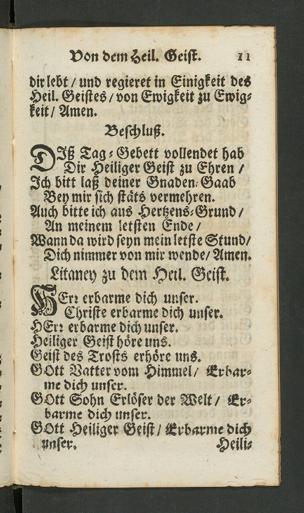 Von dem Heil. Geist. 11
dir lebt / und regieret in Einigkeit des
Heil. Geistes / von Ewigkeit zu Ewig-
keit / Amen.
Beschluß.
DIß Tag-Gebett vollendet hab
Dir Heiliger Geist zu Ehren /
Ich bitt laß deiner Gnaden-Gaab
Bey mir sich stäts vermehren.
Auch bitte ich aus Hertzens-Grund /
An meinem letsten Ende /
Wann da wird seyn mein letste Stund /
Dich nimmer von mir wende / Amen.
Litaney zu dem Heil. Geist.
HErr erbarme dich unser.
Christe erbarme dich unser.
HErr erbarme dich unser.
Heiliger Geist höre uns.
Geist des Trosts erhöre uns.
GOtt Vatter vom Himmel / Erbar-
me dich unser.
GOtt Sohn Erlöser der Welt / Er-
barme dich unser.
GOtt Heiliger Geist / Erbarme dich
unser. Heili-